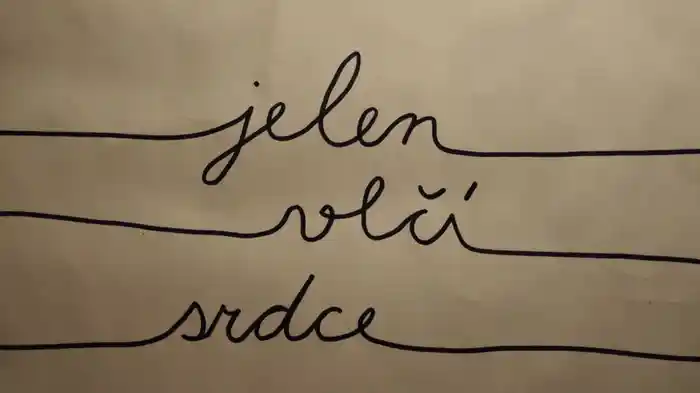 jelen
vlčí
srdce